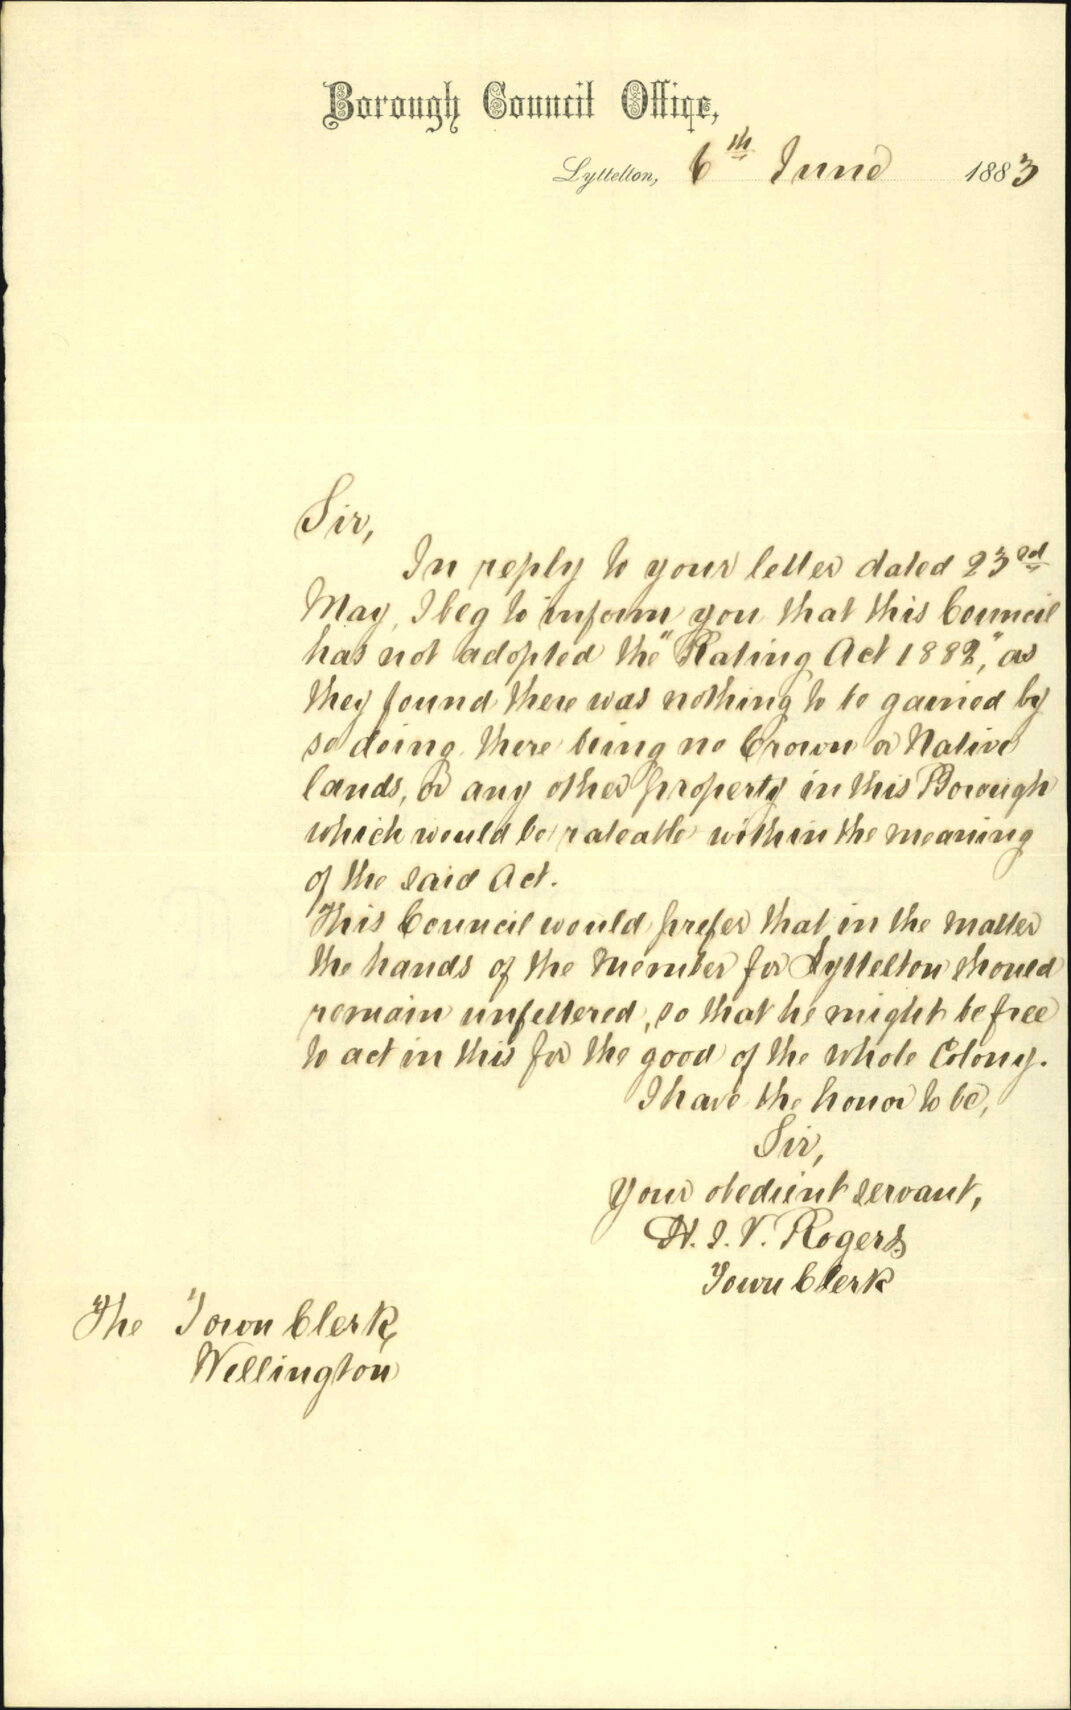 Borough Council Office,
Lyttelton, 6th June 1883
Sir,
In reply to your letter dated 23rd
May, I beg to inform you that this Council
has not adopted the "Rating Act 1882", as
they found there was nothing to be gained by
so doing there being no Crown or Native
lands, or any other property in this Borough
which would be rateable within the meaning
of the said Act.
This Council would prefer that in the matter
the hands of the Member for Lyttelton should
remain unfettered, so that he might be free
to act in this for the good of the whole Colony.
I have the honor to be,
Sir,
Your obedient servant,
H. I. V. Rogers
Town Clerk
The Town Clerk,
Wellington